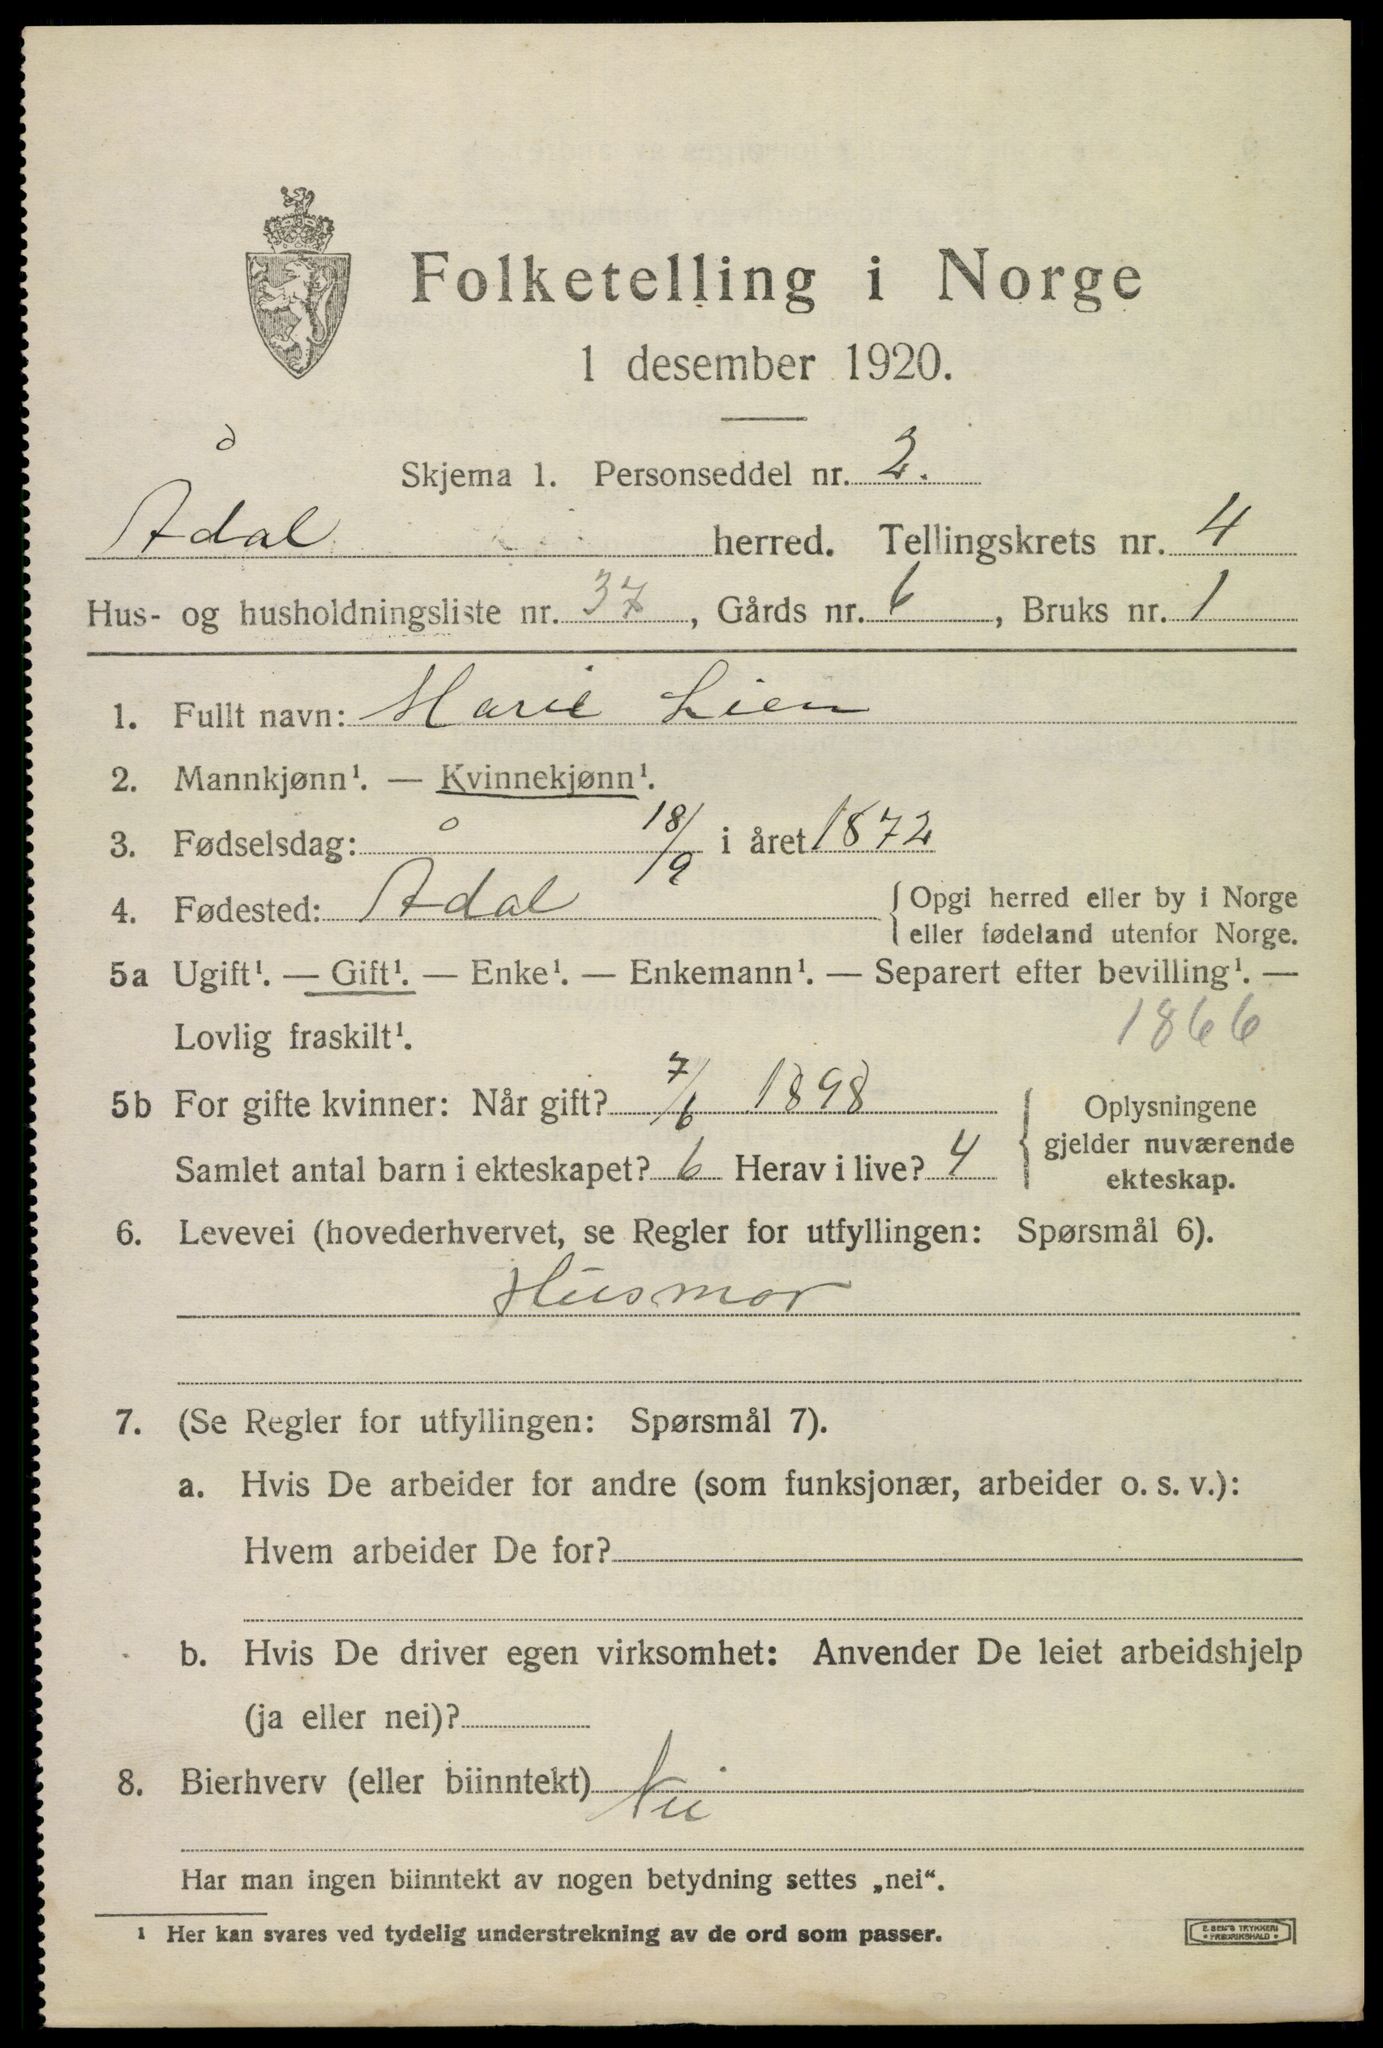 Folketelling i Norge
1 desember 1920.
Skjema 1. Personseddel nr. 2.
Ådal herred. Tellingskrets nr. 4
Hus- og husholdningsliste nr. 37, Gårds nr. 6, Bruks nr. 1
1. Fullt navn: Marie Lien
2. Mannkjønn¹. — Kvinnekjønn¹.
3. Fødselsdag: 18/9 i året 1872
4. Fødested: Ådal { Opgi herred eller by i Norge
eller fødeland utenfor Norge.
5a Ugift¹. — Gift¹. — Enke¹. — Enkemann¹. — Separert efter bevilling¹. —
Lovlig fraskilt¹. 1866
5b For gifte kvinner: Når gift? 7/6 1898
Samlet antal barn i ekteskapet? 6 Herav i live? 4
{ Oplysningene
gjelder nuværende
ekteskap.
6. Levevei (hovederhvervet, se Regler for utfyllingen: Spørsmål 6).
Husmor
7. (Se Regler for utfyllingen: Spørsmål 7).
a. Hvis De arbeider for andre (som funksjonær, arbeider o. s. v.):
Hvem arbeider De for?
b. Hvis De driver egen virksomhet: Anvender De leiet arbeidshjelp
(ja eller nei)?
8. Bierhverv (eller biinntekt) Nei
Har man ingen biinntekt av nogen betydning settes „nei“.
¹ Her kan svares ved tydelig understrekning av de ord som passer.
E. SEM'S TRYKKERI
• FREDRIKSHALD •